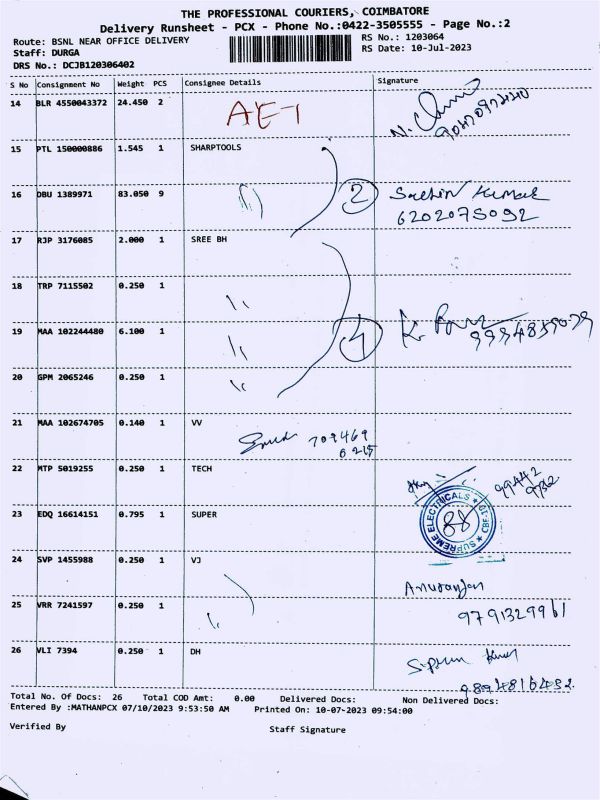 THE PROFESSIONAL COURIERS, COIMBATORE
Delivery Runsheet - PCX - Phone No.:0422-3505555 - Page No.:2
Route: BSNL NEAR OFFICE DELIVERY RS No.: 1203064
Staff: DURGA RS Date: 10-Jul-2023
DRS No.: DCJB120306402
S No Consignment No Weight PCS Consignee Details Signature
14 BLR 4550043372 24.450 2
15 PTL 150000886 1.545 1 SHARPTOOLS
16 DBU 1389971 83.050 9 〃 2 Sachin Kumar
6202075092
17 RJP 3176085 2.000 1 SREE BH
18 TRP 7115502 0.250 1 〃
19 MAA 102244480 6.100 1 〃 4
20 GPM 2065246 0.250 1 〃
21 MAA 102674705 0.140 1 VV
709469
6215
22 MTP 5019255 0.250 1 TECH
99442
23 EDQ 16614151 0.795 1 SUPER
SUPREME ELECTRICALS ★ CBE-01 ★
88
24 SVP 1455988 0.250 1 VJ
25 VRR 7241597 0.250 1 〃 9791329961
26 VLI 7394 0.250 1 DH
9894816492
Total No. Of Docs: 26 Total COD Amt: 0.00 Delivered Docs: Non Delivered Docs:
Entered By :MATHANPCX 07/10/2023 9:53:50 AM Printed On: 10-07-2023 09:54:00
Verified By Staff Signature